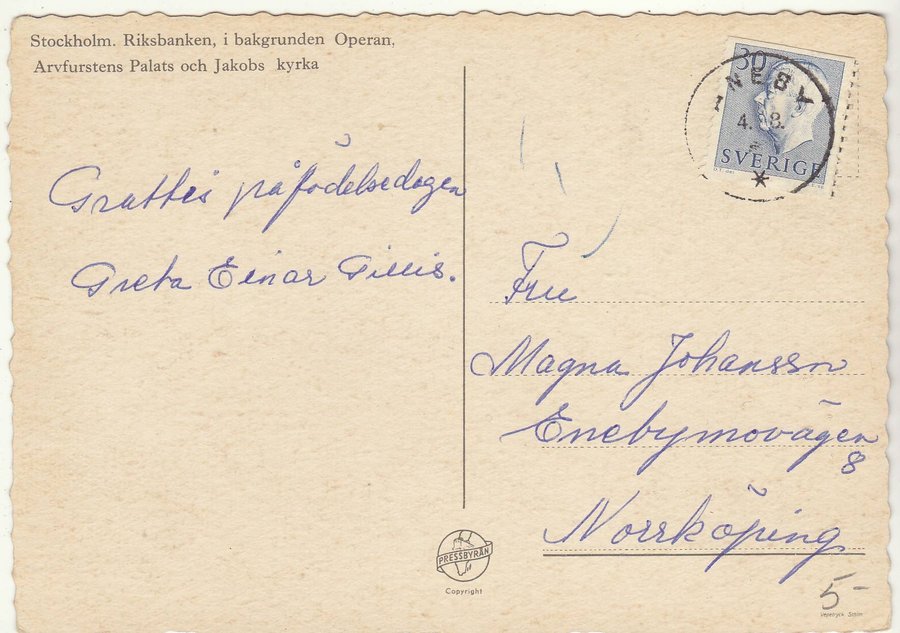 Stockholm. Riksbanken, i bakgrunden Operan,
Arvfurstens Palats och Jakobs kyrka
Grattis på födelsedagen
Greta Einar Gillis.
30
ANEBY
4. 8.
SVERIGE
Fru
Magna Johansson
Enebymovägen
8
Norrköping
PRESSBYRÅN
Copyright
5-